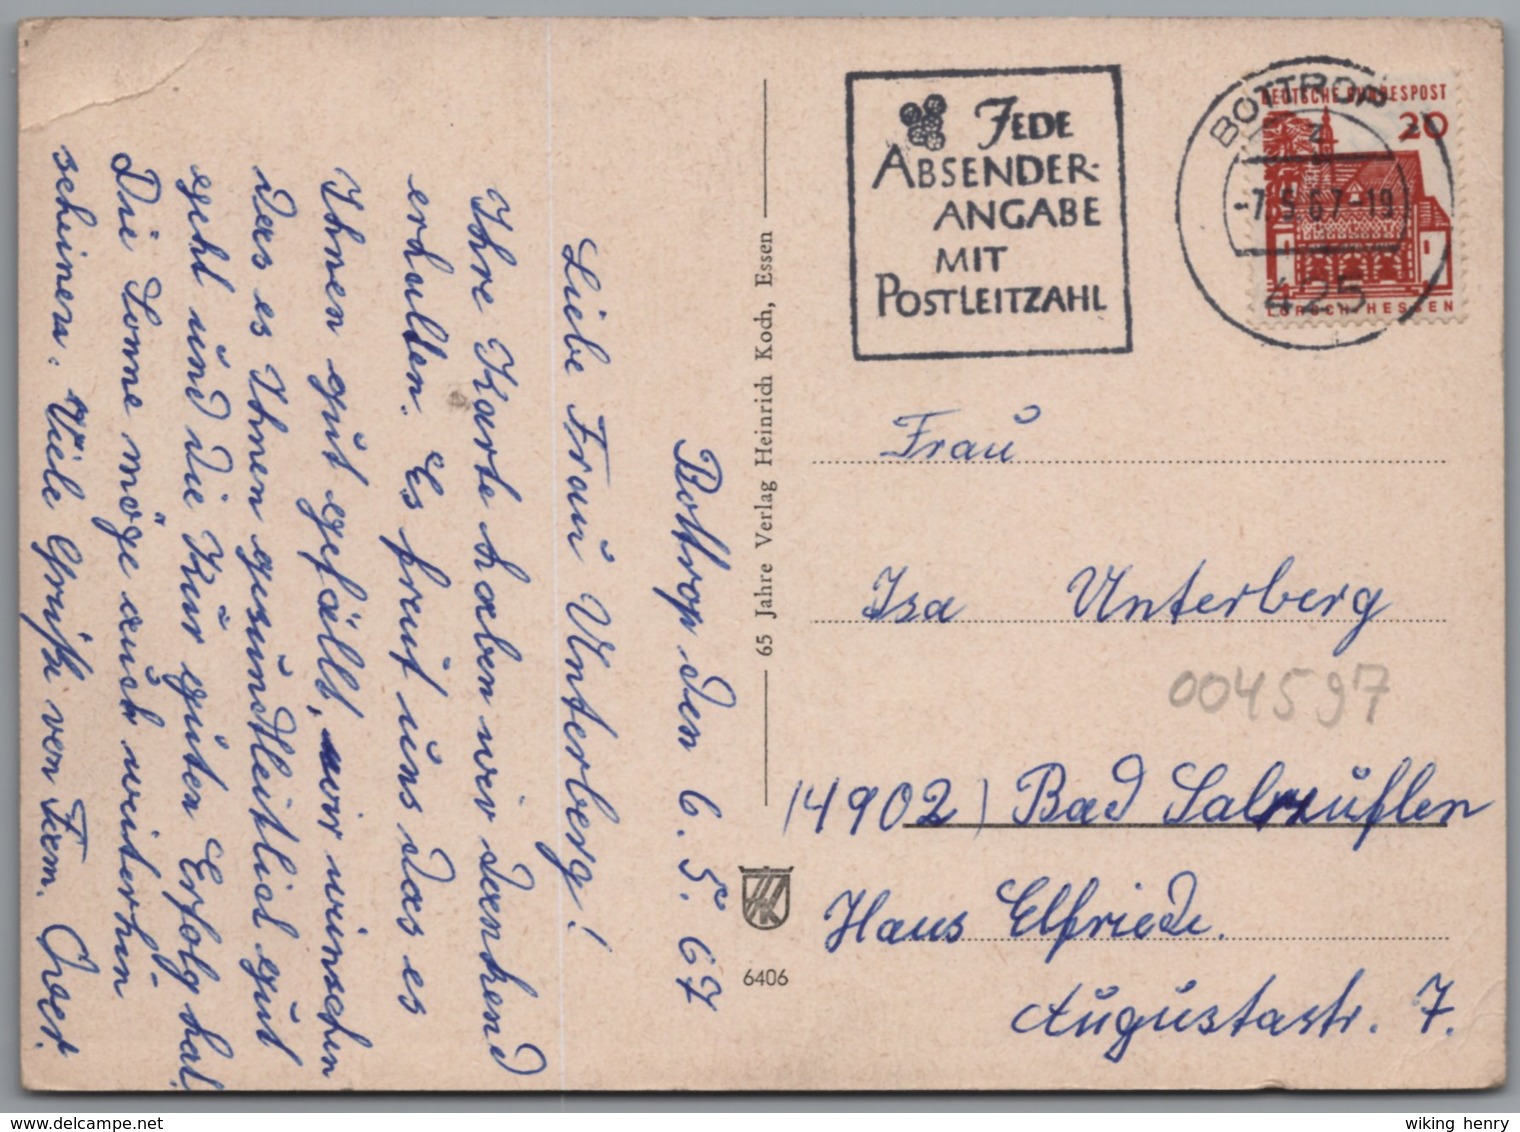 Bottrop den 6. 5. 67
Liebe Frau Unterberg!
Ihre Karte haben wir dankend
erhalten. Es freut uns das es
Ihnen gut gefällt, wir winschen
das es Ihnen gesundtleitlich gut
geht und die Kur guten Erfolg hat.
Die Sonne möge auch weiterhin
scheinen. Viele Grüße von Fam.
65 Jahre Verlag Heinrich Koch, Essen
HK
6406
JEDE
ABSENDER-
ANGABE
MIT
POSTLEITZAHL
BOTTROP
z
-7.5.67-19
425
DEUTSCHE BUNDESPOST
20
LORSCH/HESSEN
Frau
Isa Unterberg
004597
(4902) Bad Salzuflen
Haus Elfriede.
Augustastr. 7.
www.delcampe.net
wiking henry